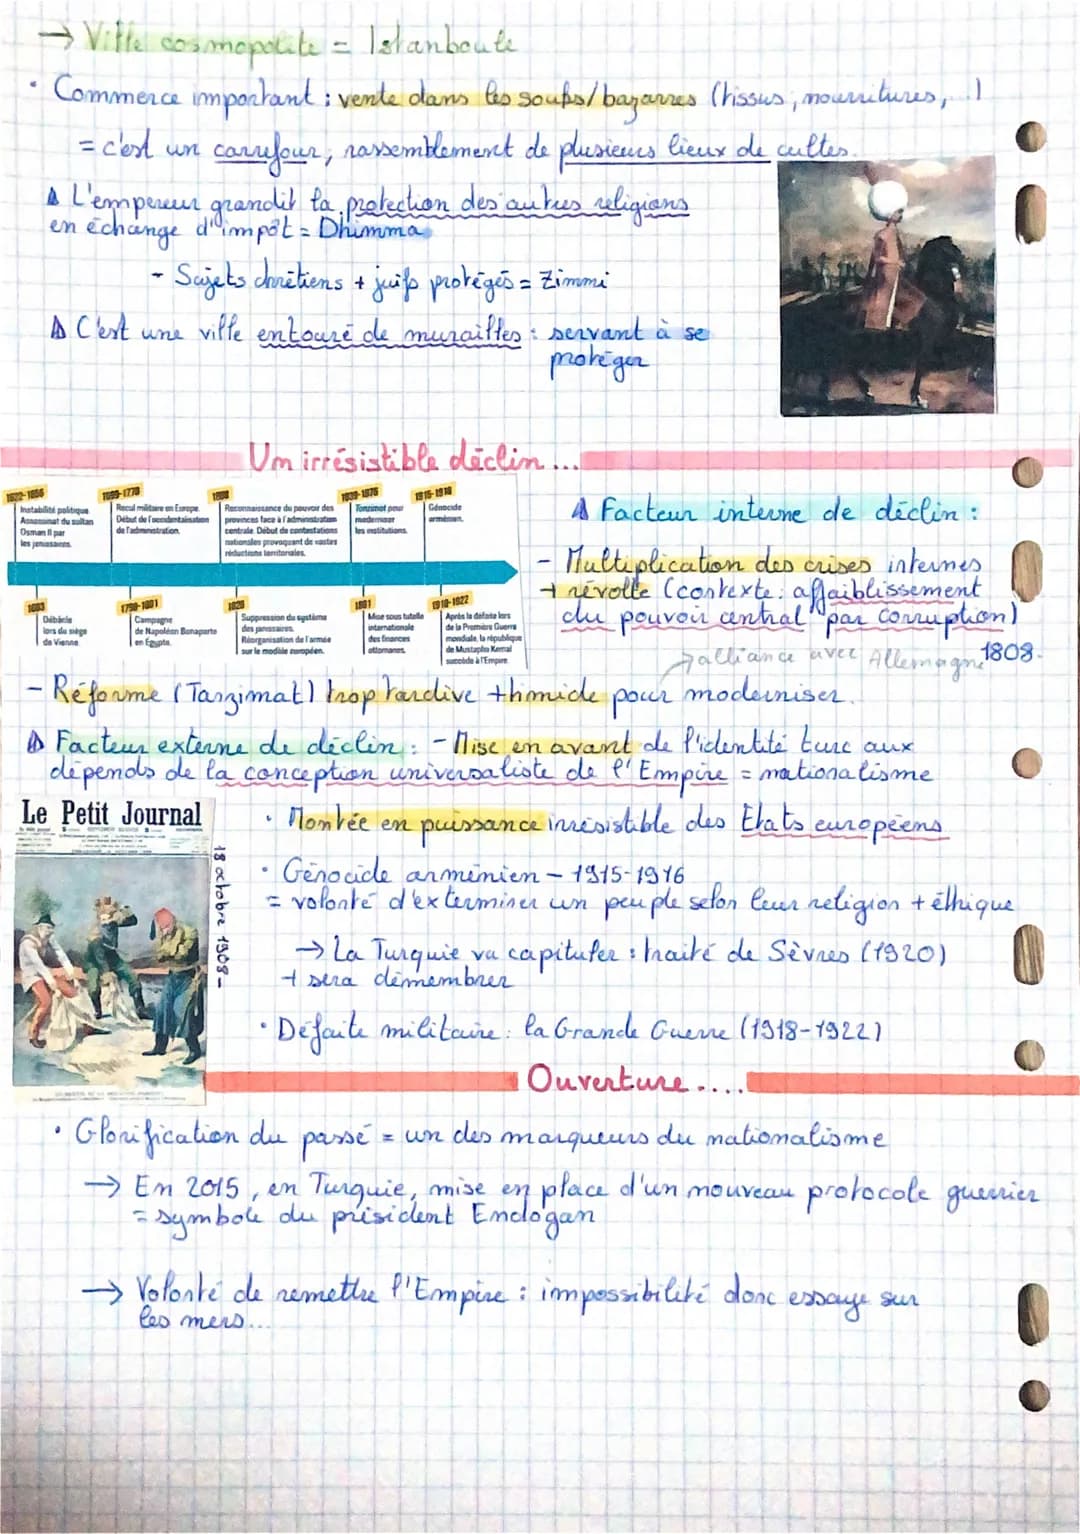 → Ville cosmopolite = Istanboule
• Commerce important : vente dans les soups/bazarres (tissus, nourritures, ...)
= c'est un carrefour, rassemblement de plusieurs lieux de cultes.
L'empereur grandit la protection des autres religions
en échange d'impôt = Dhimma
- Sujets chrétiens + juifs protégés = Zimmi
C'est une ville entouré de murailles : servant à se
protéger
Un irrésistible déclin...
1622-1656
Instabilité politique
Assassinat du sultan
Osman II par
les janissaires.
1699-1770
Recul militaire en Europe.
Début de l'occidentalisation
de l'administration.
1808
Reconnaissance du pouvoir des
provinces face à l'administration
centrale. Début de contestations
nationales provoquant de vastes
réductions territoriales.
1839-1876
Tanzimat pour
moderniser
les institutions.
1915-1916
Génocide
arménien.
1683
Débâcle
lors du siège
de Vienne.
1798-1801
Campagne
de Napoléon Bonaparte
en Égypte.
1826
Suppression du système
des janissaires.
Réorganisation de l'armée
sur le modèle européen.
1881
Mise sous tutelle
internationale
des finances
ottomanes.
1918-1922
Après la défaite lors
de la Première Guerre
mondiale, la république
de Mustapha Kemal
succède à l'Empire.
Facteur interne de déclin :
- Multiplication des crises internes
+ révolte (contexte : affaiblissement
du pouvoir central par corruption)
→ alliance avec Allemagne 1808.
- Réforme (Tanzimat) trop tardive + timide pour moderniser.
Facteur externe de déclin : - Mise en avant de l'identité turc aux
dépends de la conception universaliste de l'Empire = nationalisme
Le Petit Journal
18 octobre 1908-
• Montée en puissance irrésistible des Etats européens
• Génocide arménien - 1915-1916
= volonté d'exterminer un peuple selon leur religion + éthique
→ La Turquie va capituler : traité de Sèvres (1920)
+ sera démembrer
• Défaite militaire : la Grande Guerre (1918-1922)
Ouverture....
• Glorification du passé = un des marqueurs du nationalisme
→ En 2015, en Turquie, mise en place d'un nouveau protocole guerrier
= symbole du président Endogan
→ Volonté de remettre l'Empire : impossibilité donc essaye sur
les mers...